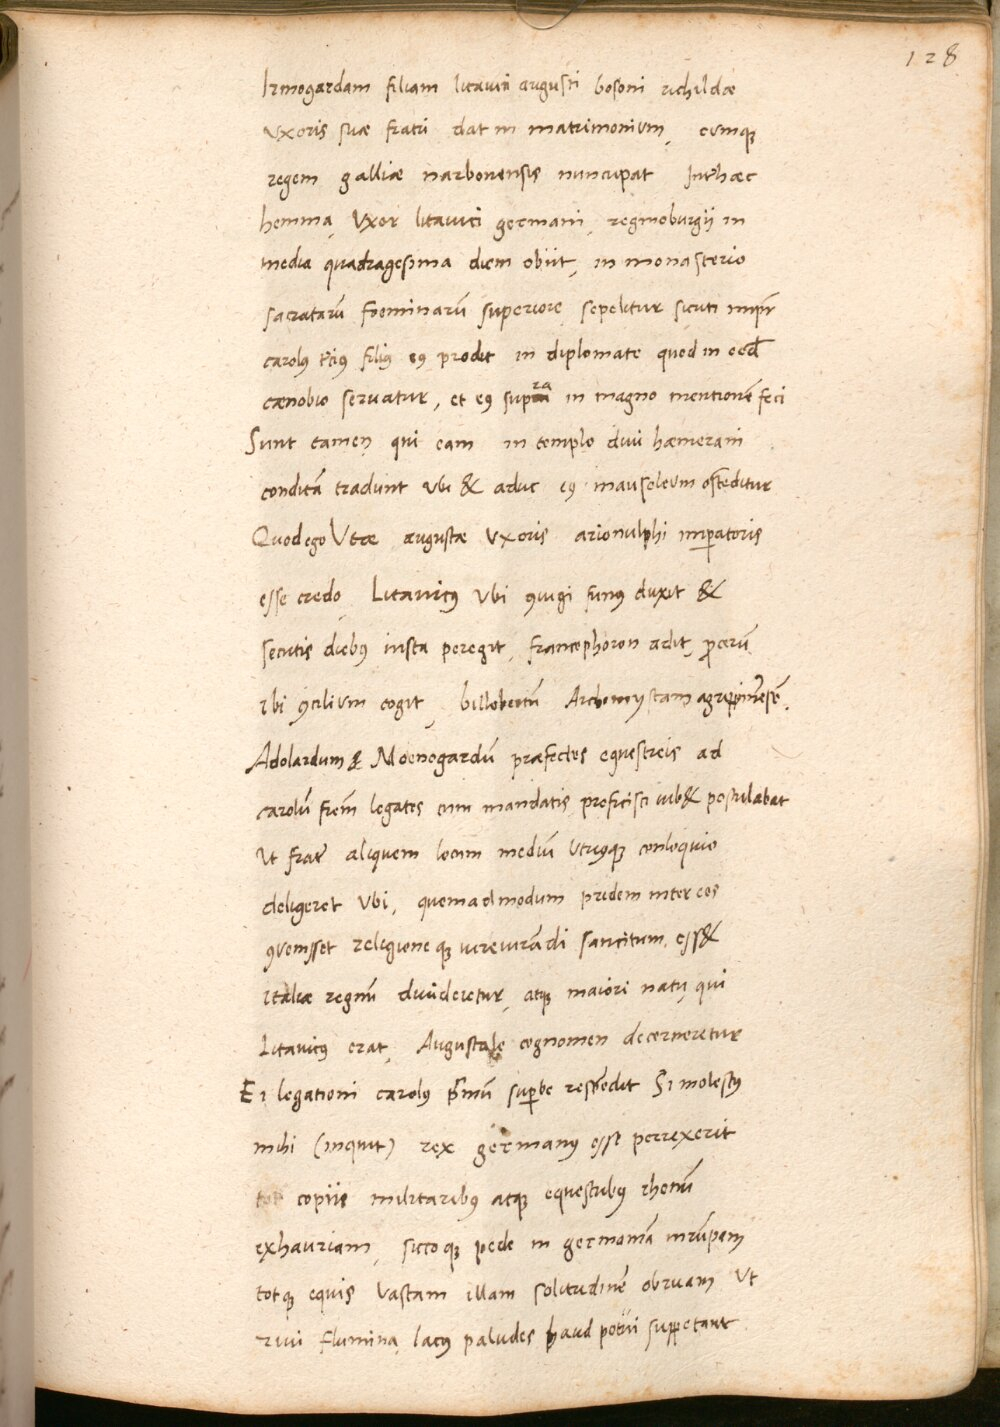 128
Irmogardam filiam litauici augusti bosoni richildæ
vxoris suæ fratri dat in matrimonium, eumq3
regem galliæ narbonensis nuncupat Inthæc
hemma, vxor litauici germani, reginoburgij in
media quadragesima diem obiit, in monasterio
sacratarũ foeminarũ superiore sepelitur sicuti impr
carolꝰ tciꝰ filiꝰ eꝰ prodit in diplomate quod in eod
cænobio seruatur, et eꝰ supra in magno mentionẽ feci
Sunt tamen qui eam in templo diui hæmerani
conditã tradunt vbi & aduc eꝰ mausoleum ostẽditur
Quod ego Vtæ augustæ vxoris arionulphi imꝑatoris
esse credo, Litauicꝰ vbi ꝯiugi funꝰ duxit &
secutis diebꝰ iusta peregit, francophoron adit, procerũ
ibi ꝯcilium cogit, billobertũ Archimystam agrippinẽsẽ,
Adolardum & Moenogardũ præfectos equestreis ad
carolũ frem legatos cum mandatis proficisci iub& postulabat
vt frater aliquem locum mediũ vtriusq3 conloquio
deligeret vbi, quemadmodum pridem inter eos
ꝯuenisset religione q3 iureiurãdi sancitum ess&
italiæ regnũ diuideretur, atq3 maiori natu, qui
Litauicꝰ erat, Augustale cognomen decerneretur
Ei legationi carolꝰ suꝑbe respõdit Si molestꝰ
mihi (inquit) rex germanꝰ esse perrexerit
tot copiis militaribꝰ atq3 equestribꝰ rhenũ
exhauriam, sicco q3 pede in germaniã irrũpam
totq3 equis vastam illam solitudinẽ obruam vt
riui flumina, lacꝰ paludes haud potui suppetant